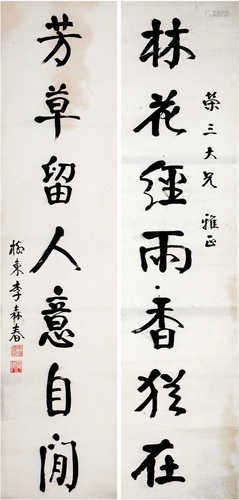 林花經雨香猶在
榮三大兄 雅正
芳草留人意自閒
李森春